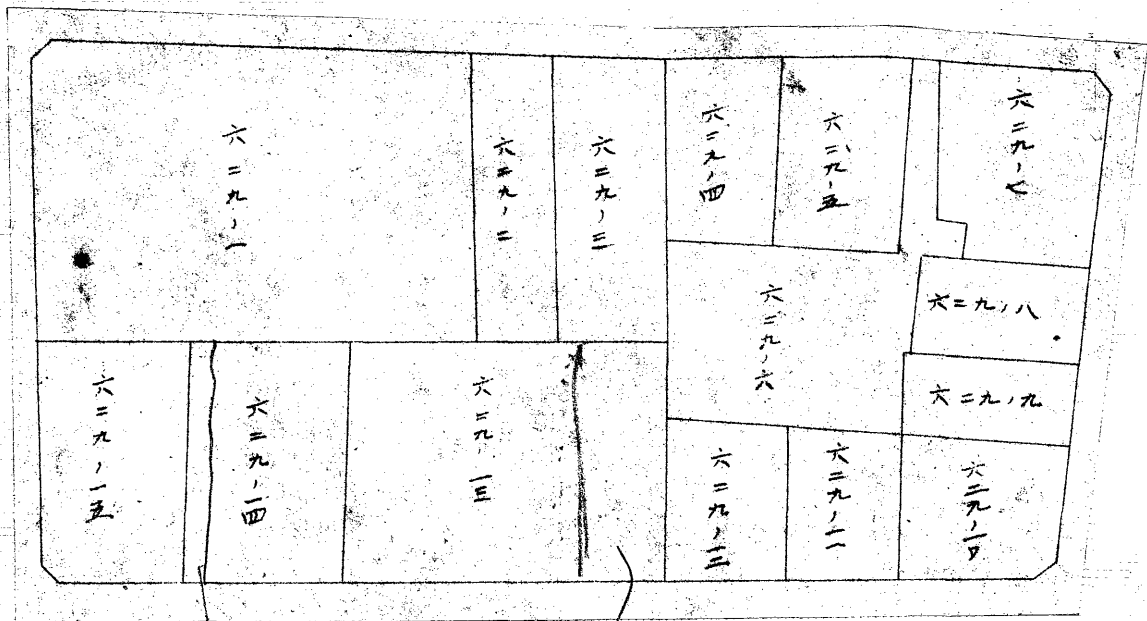 六二九ノ一
六二九ノ二
六二九ノ三
六二九ノ四
六二九ノ五
六二九ノ七
六二九ノ六
六二九ノ八
六二九ノ九
六二九ノ一五
六二九ノ一四
六二九ノ一三
六二九ノ一二
六二九ノ一一
六二九ノ一〇